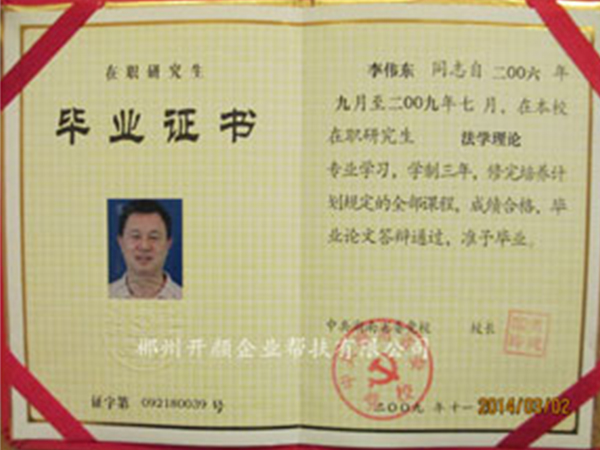 在职研究生
毕业证书
证字第 092180039 号
李伟东 同志自二〇〇六年
九月至二〇〇九年七月，在本校
在职研究生 法学理论
专业学习，学制三年，修完培养计
划规定的全部课程，成绩合格，毕
业论文答辩通过，准予毕业。
中共湖南省委党校 校长
二〇〇九年十一
2014/03/02
郴州开颜企业帮扶有限公司